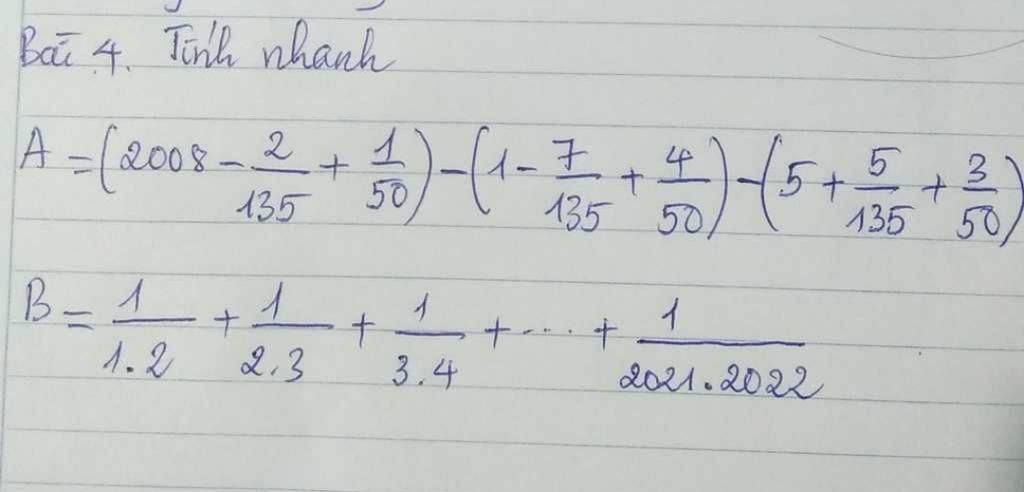 Bài 4. Tính nhanh
A = (2008 - 2/135 + 1/50) - (1 - 7/135 + 4/50) - (5 + 5/135 + 3/50)
B = 1/1.2 + 1/2.3 + 1/3.4 + ... + 1/2021.2022